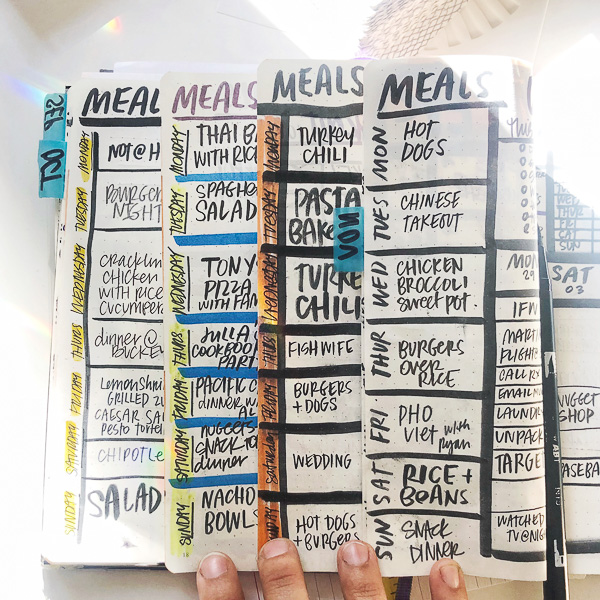 SEP
OCT
MEALS
MONDAY
NOT @ H
TUESDAY
BURGER
NIGHT
WEDNESDAY
CRACKLIN
CHICKEN
WITH RICE
CUCUMBER
THURS
dinner @
BUCKEY
FRIDAY
Lemon Shri
GRILLED ZU
CAESAR SA
pesto
SATURDAY
CHIPOTLE
SUNDAY
SALAD
MEALS
MONDAY
THAI B
WITH RIC
TUESDAY
SPAGHE
SALAD
WEDNESDAY
TONY
PIZZA
WITH FAM
THURS
JULIA
COOKBOO
PART
FRIDAY
PACIFIC C
dinner w
SATURDAY
NUGGETS
SNACK TO
dinner
SUNDAY
NACHO
BOWL
MEALS
MONDAY
TURKEY
CHILI
TUESDAY
PASTA
BAKE
WEDNESDAY
TURKE
CHILI
THURS
FISHWIFE
FRIDAY
BURGERS
+ DOGS
Saturday
WEDDING
SUNDAY
HOT DOGS
+ BURGERS
NOV
MEALS
MON
HOT
DOGS
TUES
CHINESE
TAKEOUT
WED
CHICKEN
BROCCOLI
sweet pot.
THUR
BURGERS
OVER
RICE
FRI
PHO
Viet with
Ryan
SAT
RICE +
BEANS
SUN
SNACK
DINNER
MON
29
IFW
MARTI
FLIGHT
CALL RX
EMAIL
LAUND
UNPACK
TARGE
WATCHED
TV @ NIG
SUN
SAT
03
NUGGET
SHOP
BASEBA